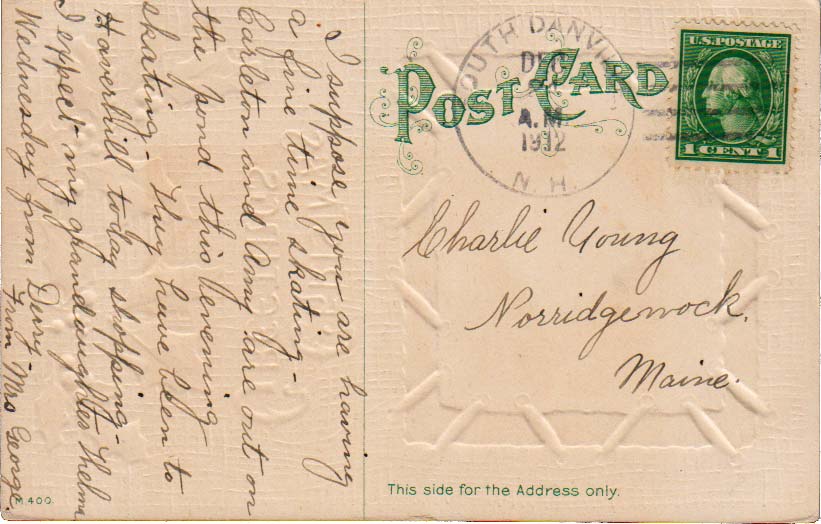 I suppose you are having
a fine time skating-
Carleton and Amy are out on
the pond this evening
skating- They have been to
Haverhill today shopping-
I expect my grandaughter Thelma
Wednesday from Derry-
From Mrs George.
M.400.
POST CARD
SOUTH DANVI
DEC
A.M.
1912
N. H.
U.S. POSTAGE
1 CENT 1
Charlie Young
Norridgewock,
Maine.
This side for the Address only.